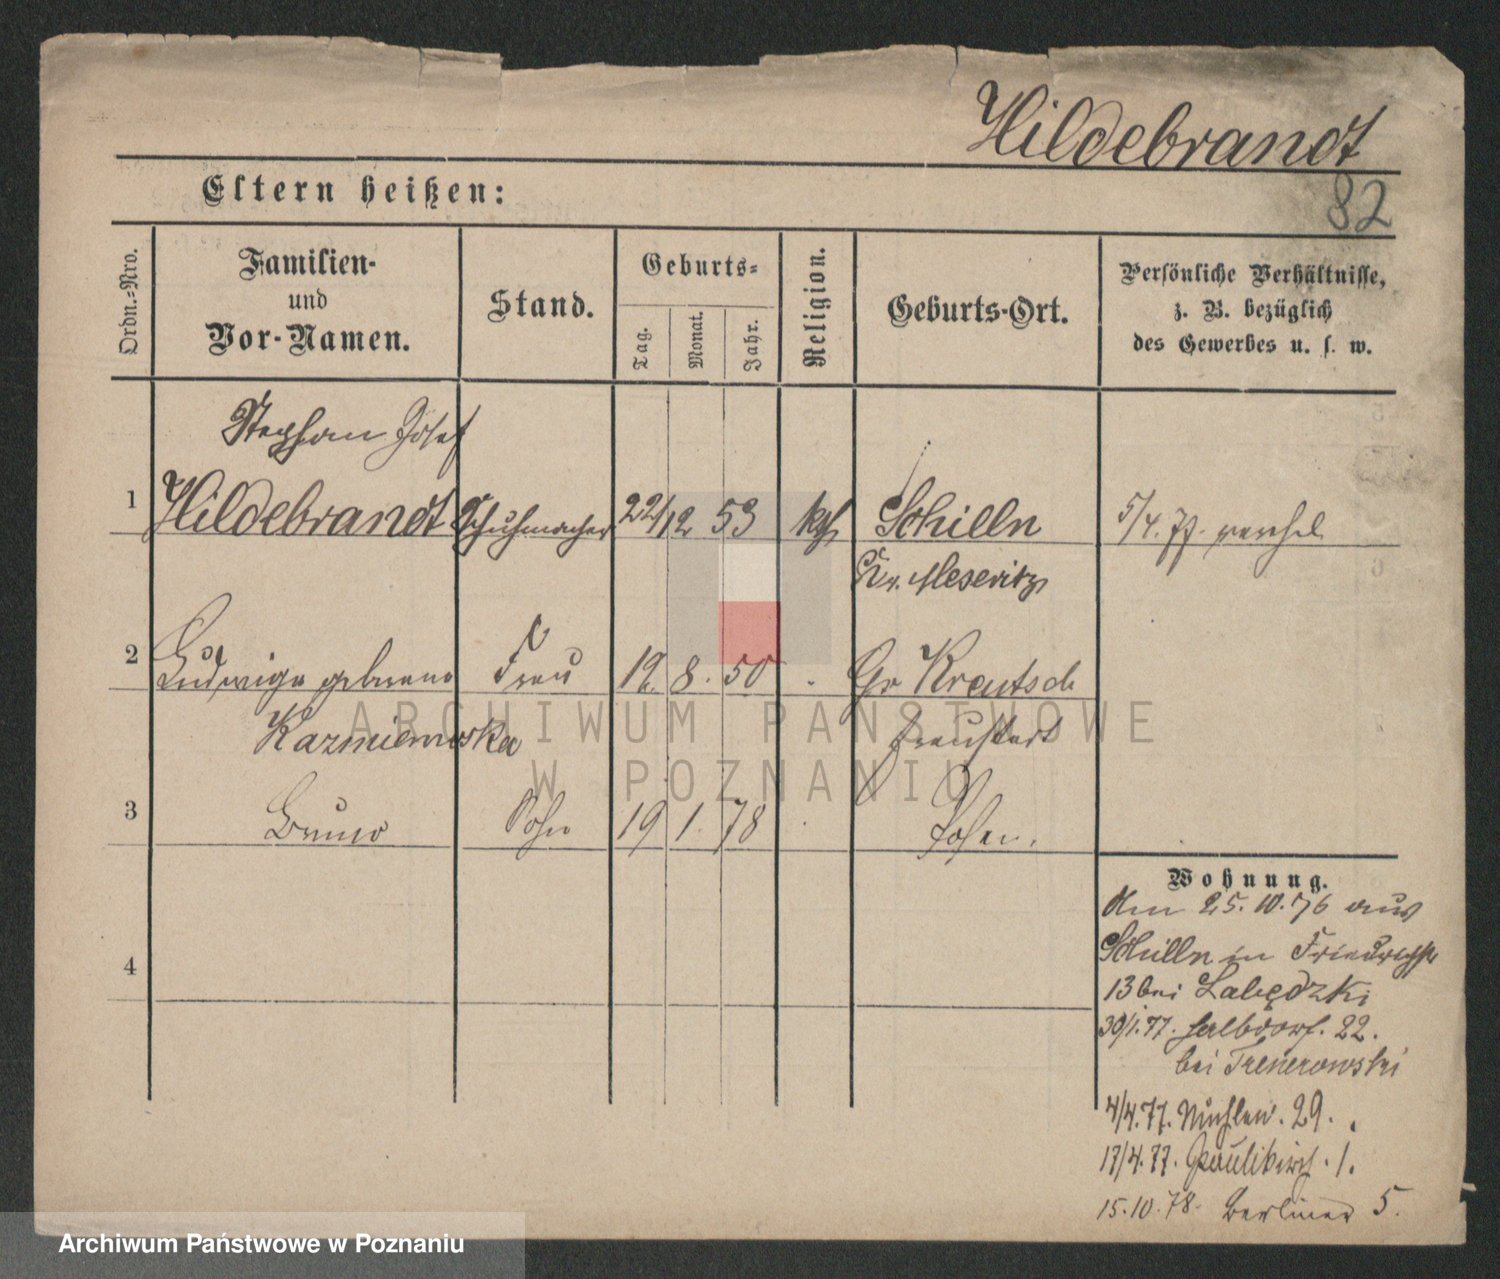 Hildebrandt
82
Eltern heißen:
Ordn.-Nro.
Familien-
und
Vor-Namen.
Stand.
Geburts-
Tag.
Monat.
Jahr.
Religion.
Geburts-Ort.
Persönliche Verhältnisse,
z. B. bezüglich
des Gewerbes u. s. w.
Stephan Josef
1 Hildebrandt Schuhmacher 22/12 53 kth Schilln 5/4.77.
Kr. Meseritz
2 Ludwiga geborene Frau 19. 8. 50 . Gr Kreutsch
Kazmierowska Fraustadt
3 Bruno Sohn 19 1. 78 . Posen.
4
Wohnung.
Am 25.10.76 aus
Schilln in Friedrichstr
13 bei Labędzki
30/1.77. Halbdorf. 22.
bei
4/4.77. Mühlen. 29.
17/4.77. Paulikirch. 1.
15.10.78. Berliner 5.
ARCHIWUM PAŃSTWOWE
W POZNANIU
Archiwum Państwowe w Poznaniu